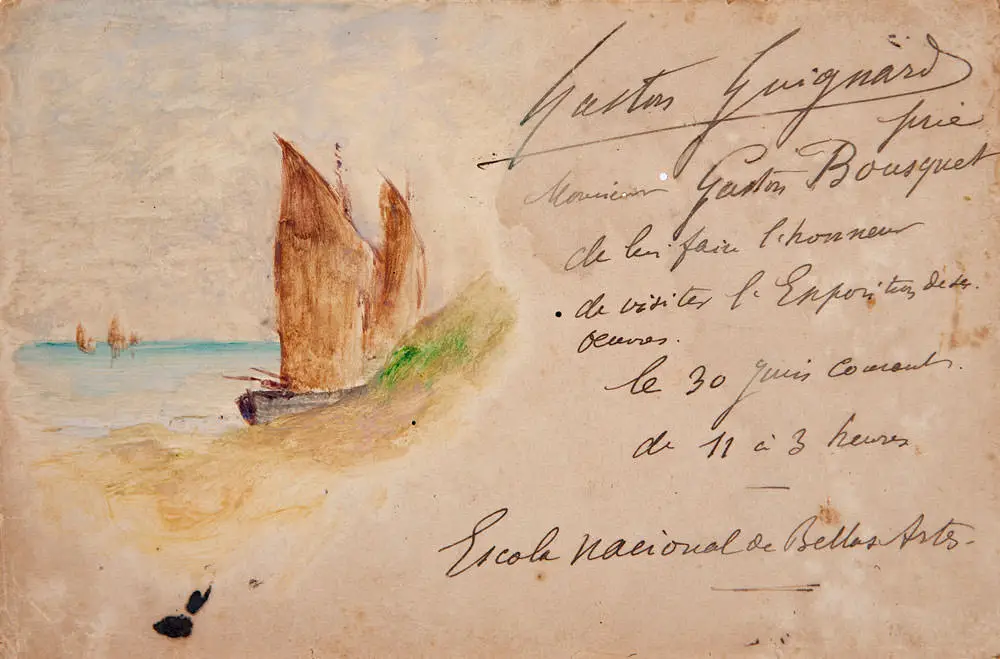 Gaston Guignard
prie
Monsieur Gaston Bousquet
de lui faire l'honneur
de visiter l'Exposition de ses
oeuvres.
le 30 juin courant.
de 11 à 3 heures
Escola nacional de Bellas Artes.